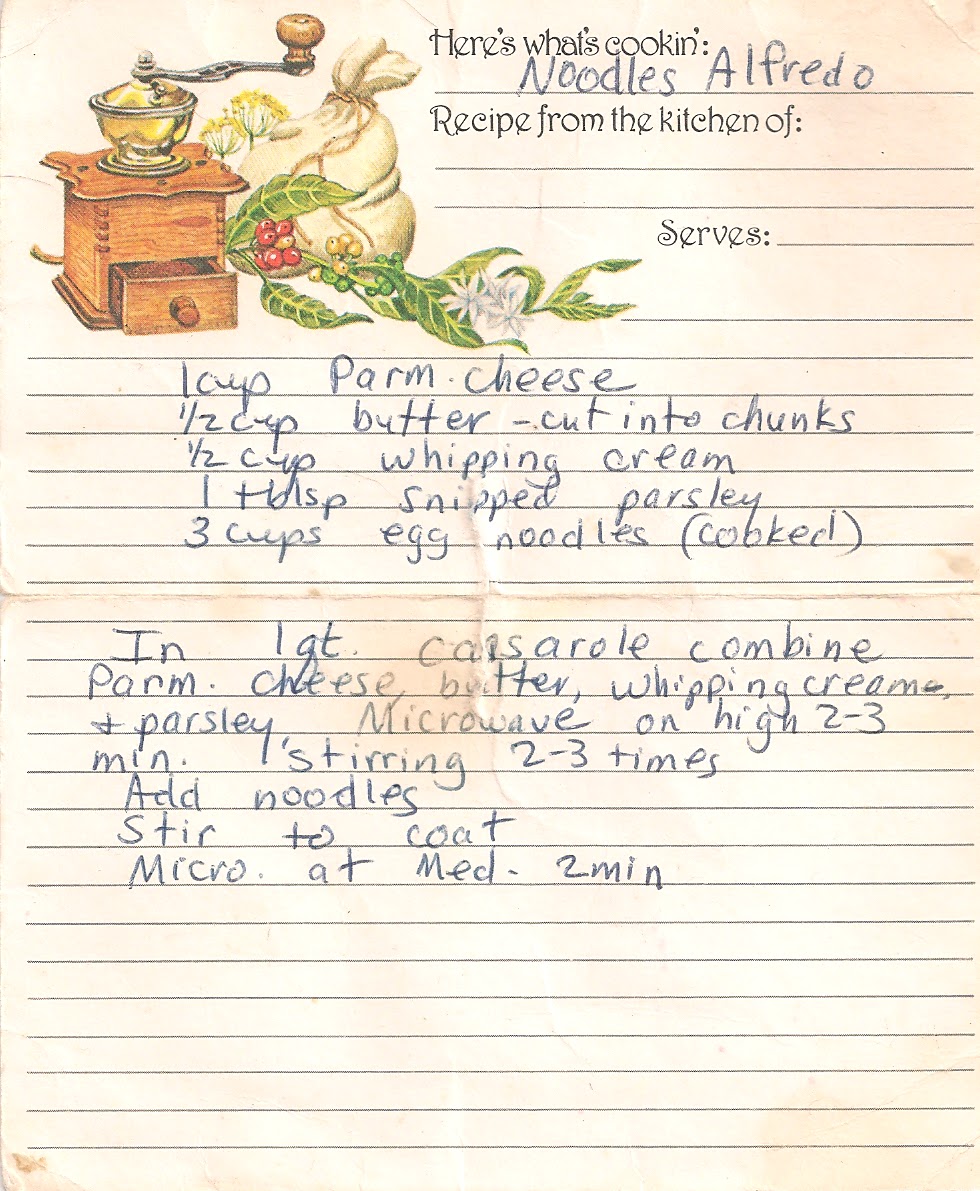 Here's what's cookin':
Noodles Alfredo
Recipe from the kitchen of:
Serves:
1 cup Parm. cheese
1/2 cup butter - cut into chunks
1/2 cup whipping cream
1 tblsp snipped parsley
3 cups egg noodles (cooked)
In 1 qt. cassarole combine
Parm. cheese, butter, whipping cream,
+ parsley, Microwave on high 2-3
min. stirring 2-3 times
Add noodles
Stir to coat
Micro. at Med. 2 min